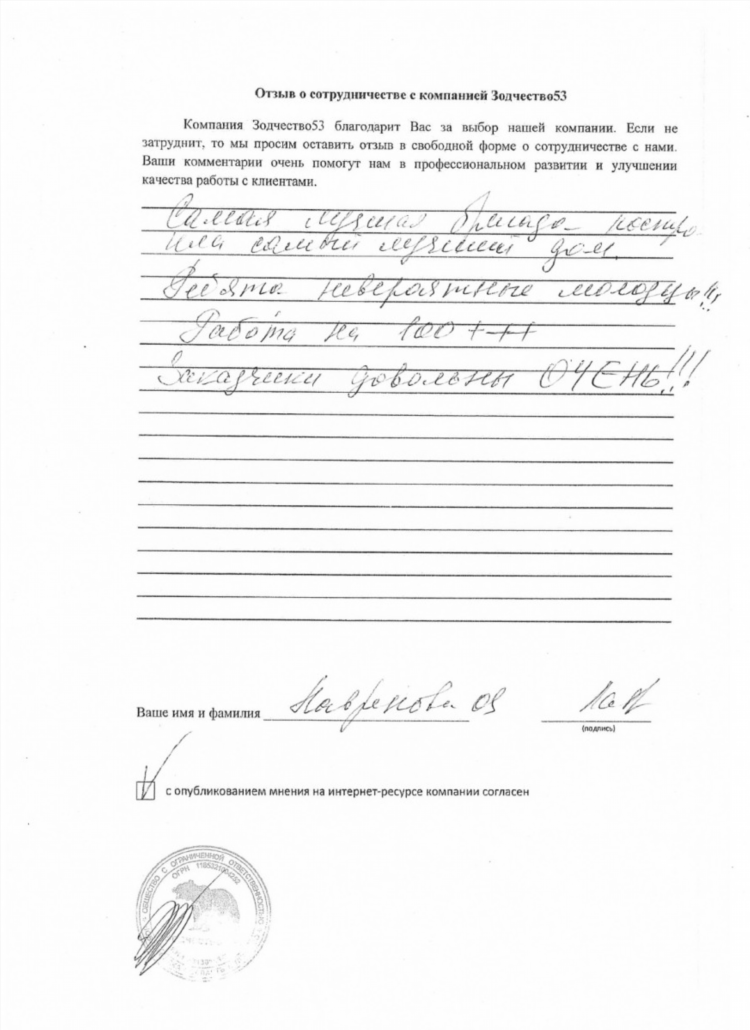 Отзыв о сотрудничестве с компанией Зодчество53
Компания Зодчество53 благодарит Вас за выбор нашей компании. Если не
затруднит, то мы просим оставить отзыв в свободной форме о сотрудничестве с нами.
Ваши комментарии очень помогут нам в профессиональном развитии и улучшении
качества работы с клиентами.
Самая лучшая бригада построи
ила самый лучший дом.
Ребята невероятные молодцы!!!
Работа на 100 +++
Заказчики довольны ОЧЕНЬ!!!
Ваше имя и фамилия
(подпись)
с опубликованием мнения на интернет-ресурсе компании согласен
ОБЩЕСТВО С ОГРАНИЧЕННОЙ ОТВЕТСТВЕННОСТЬЮ
ОГРН